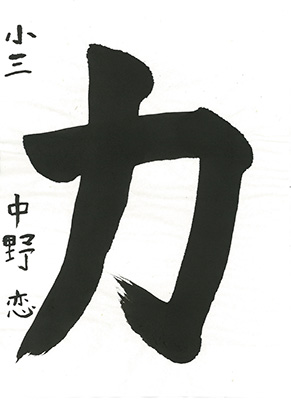 力
小三 中野恋